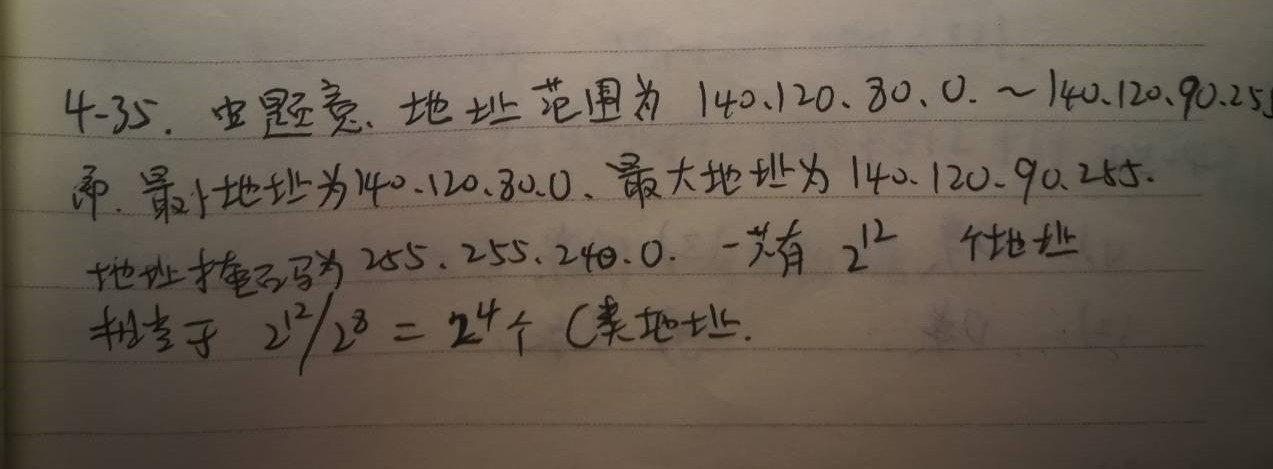 4-35. 由题意、地址范围为 140.120.80.0. ~ 140.120.90.255
即. 最小地址为140.120.80.0、最大地址为 140.120.90.255.
地址掩码写为 255.255.240.0. 一共有 2^12 个地址
相当于 2^12/2^8 = 2^4个 C类地址.